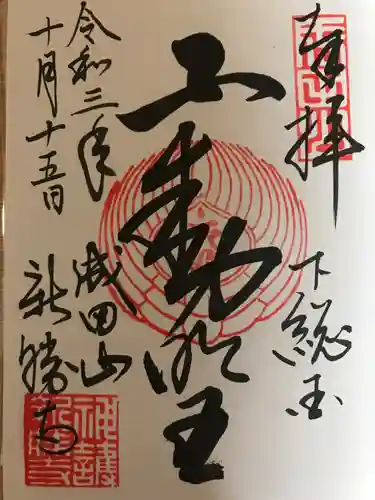 奉拝
下総国
不動明王
成田山
新勝寺
令和三年
十月十五日
神護
新勝寺